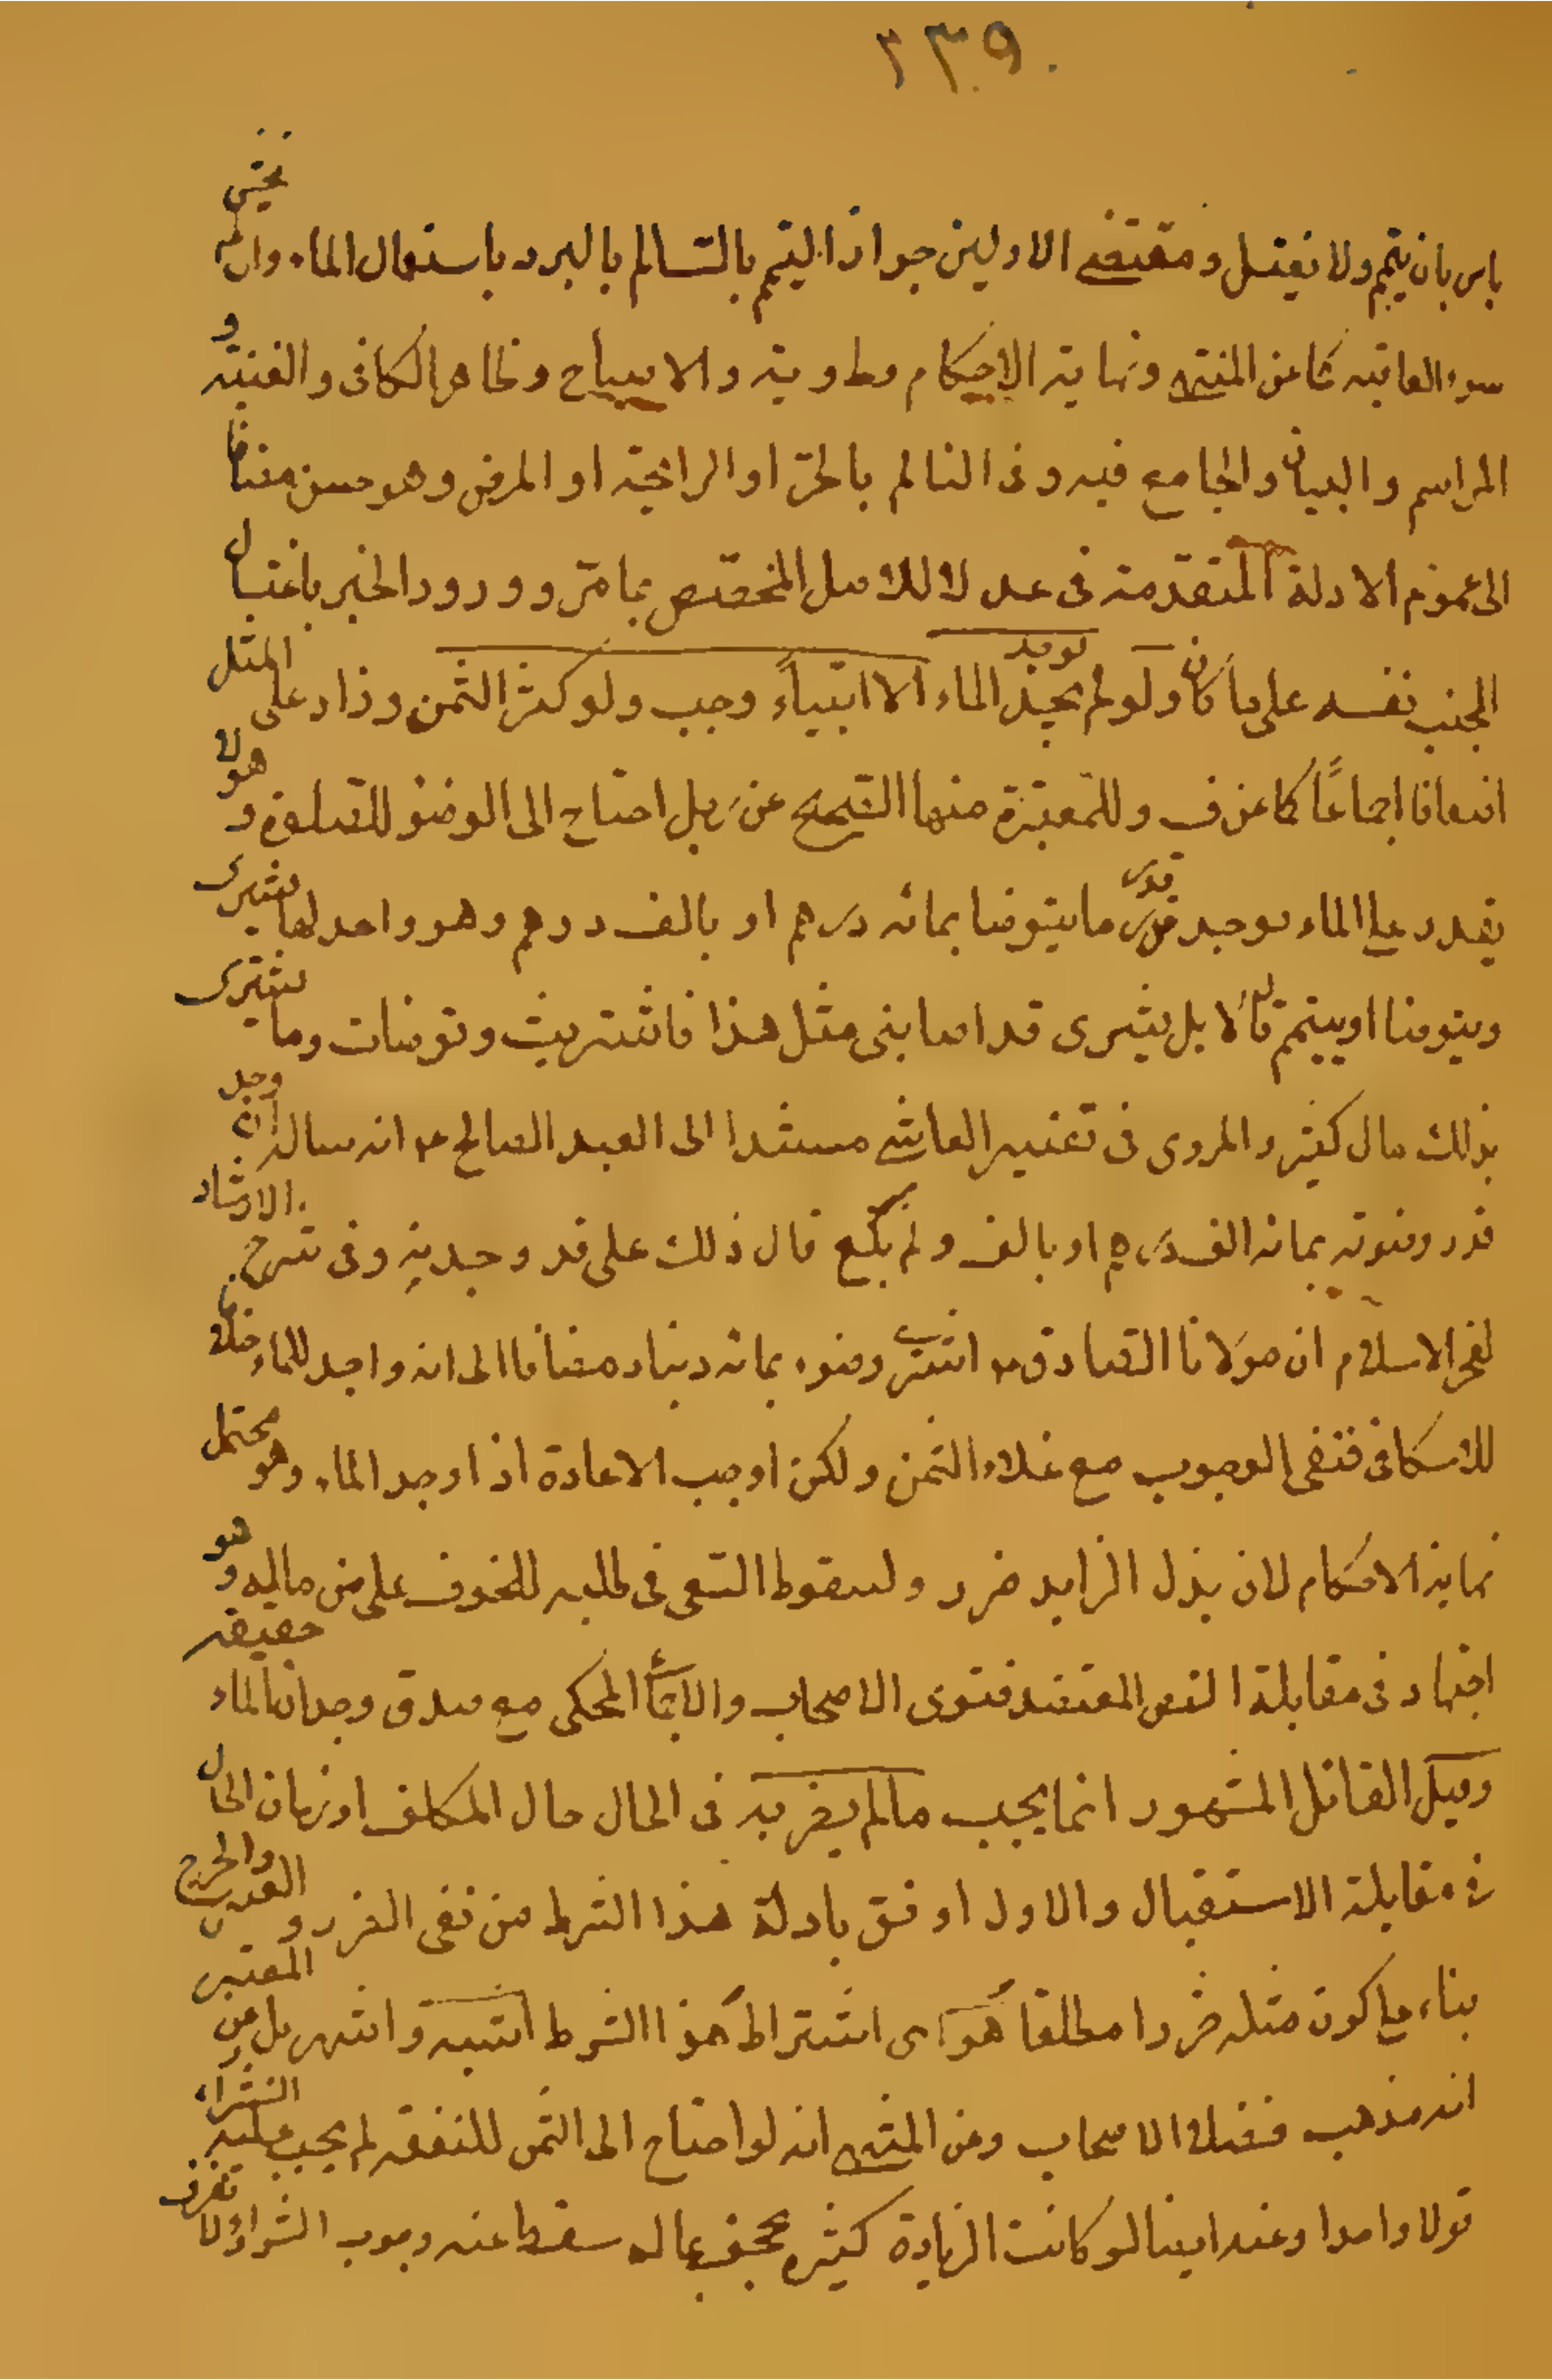 ٢٣٩
باس بان يتيمم ولا يغتسل و مقتضى الاولين جواز التيمم بالتألم بالبرد باستعمال الماء وان لم يخش
سوء العاقبه كما عن المنتهى ونهاية الاحكام وط و يه والاصباح وظاهر الكافى والغنيه و
المراسم والبيان والجامع فيه وفى التالم بالحر او الرائحة او المرض وهو حسن مضافا
الى عموم الادلة المتقدمة فى عد لا للاصل المختص بما مر وورود الخبر باغتسال
الجنب نفسه على ما كان ولو لم يوجد الماء الا ابتياعا وجب ولو كثر الثمن وزاد على المثل
اضعافا اجماعًا كما عن ف وللمعتبرة منها الصحيح عن رجل احتاج الى الوضوء للصلوة وهو لا
يقدر على الماء فوجد قدر ما يتوضا بمائه درهم او بالف درهم وهو واجد لها يشترى
ويتوضا او يتيمم قال لا بل يشترى قد اصابنى مثل هذا فاشتريت و توضات وما يشترى
بذلك مال كثير والمروى فى تفسير العياشى مسندا الى العبد الصالح ع انه ساله ان وجد
قدر وضوئه بمائه الف درهم او بالف و لم بكم يبع قال ذلك على قدر جدته وفى شرح الارشاد
لفخر الاسلام ان مولانا الصادق ع اشترى وضوءه بمائه دينار مضافا الى انه واجد للماء خلافا
للاسكافى فنفى الوجوب مع غلاء الثمن ولكن اوجب الاعادة اذا وجد الماء وهو محتمل
نهاية الاحكام لان بذل الزايد ضرر ولسقوط السعى فى طلبه للخوف على شئ من ماله وهو
اجتهاد فى مقابلة النص المعتضد بفتوى الاصحاب والاجماع المحكى مع صدق وجدان الماء حقيقه
وقيل القائل المشهور انما يجب مالم يضر به فى الحال حال المكلف او زمان الحال
فى مقابلة الاستقبال والاول اوفق بادلة هذا الشرط من نفى الضرر و العسر والحرج
بناء على كون مثله ضررا مطلقا هو اى اشتراط هذا الشرط اشبه واشهر بل عن المعتبر
انه مذهب فضلاء الاصحاب وعن المنتهى انه لو احتاج الى الثمن للنفقه لم يجب عليه الشراء
قولا واحدا وعنه ايضا لو كانت الزيادة كثيره تجحف بماله سقط عنه وجوب الشراء ولا نعرف